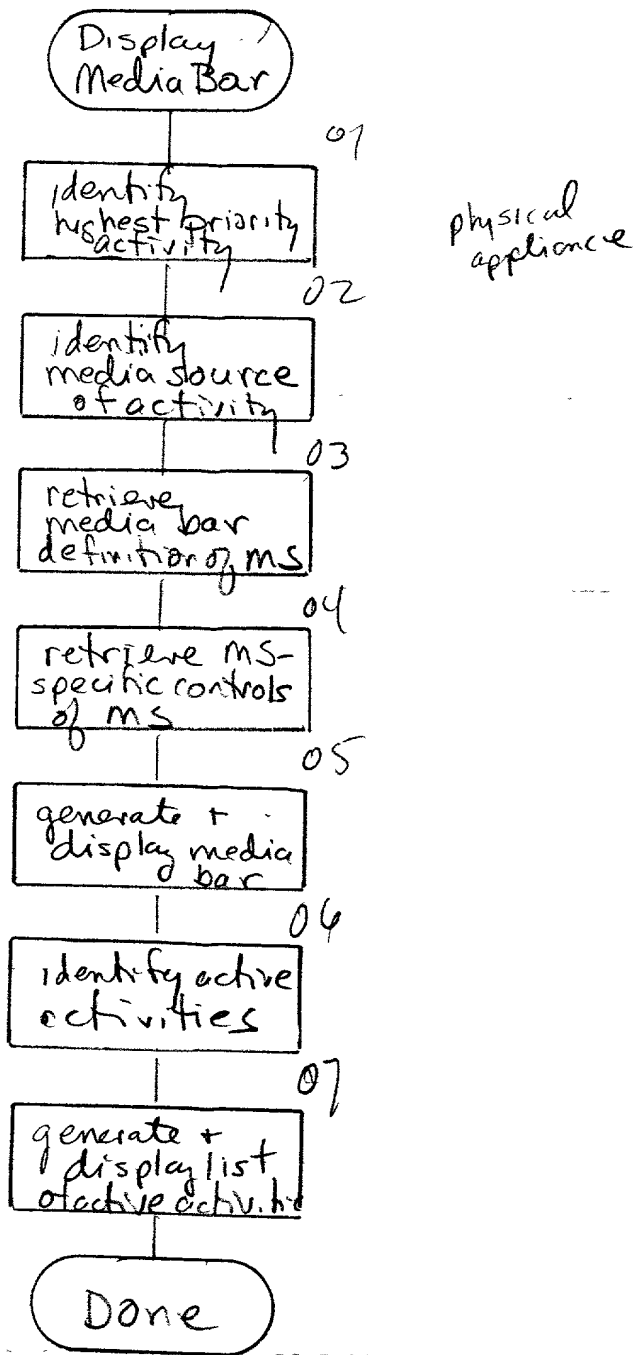 Display
Media Bar
01
identify
highest priority
activity
physical
appliance
02
identify
media source
of activity
03
retrieve
media bar
definition of MS
04
retrieve MS-
specific controls
of MS
05
generate +
display media
bar
06
identify active
activities
07
generate +
display list
of active activitie
Done